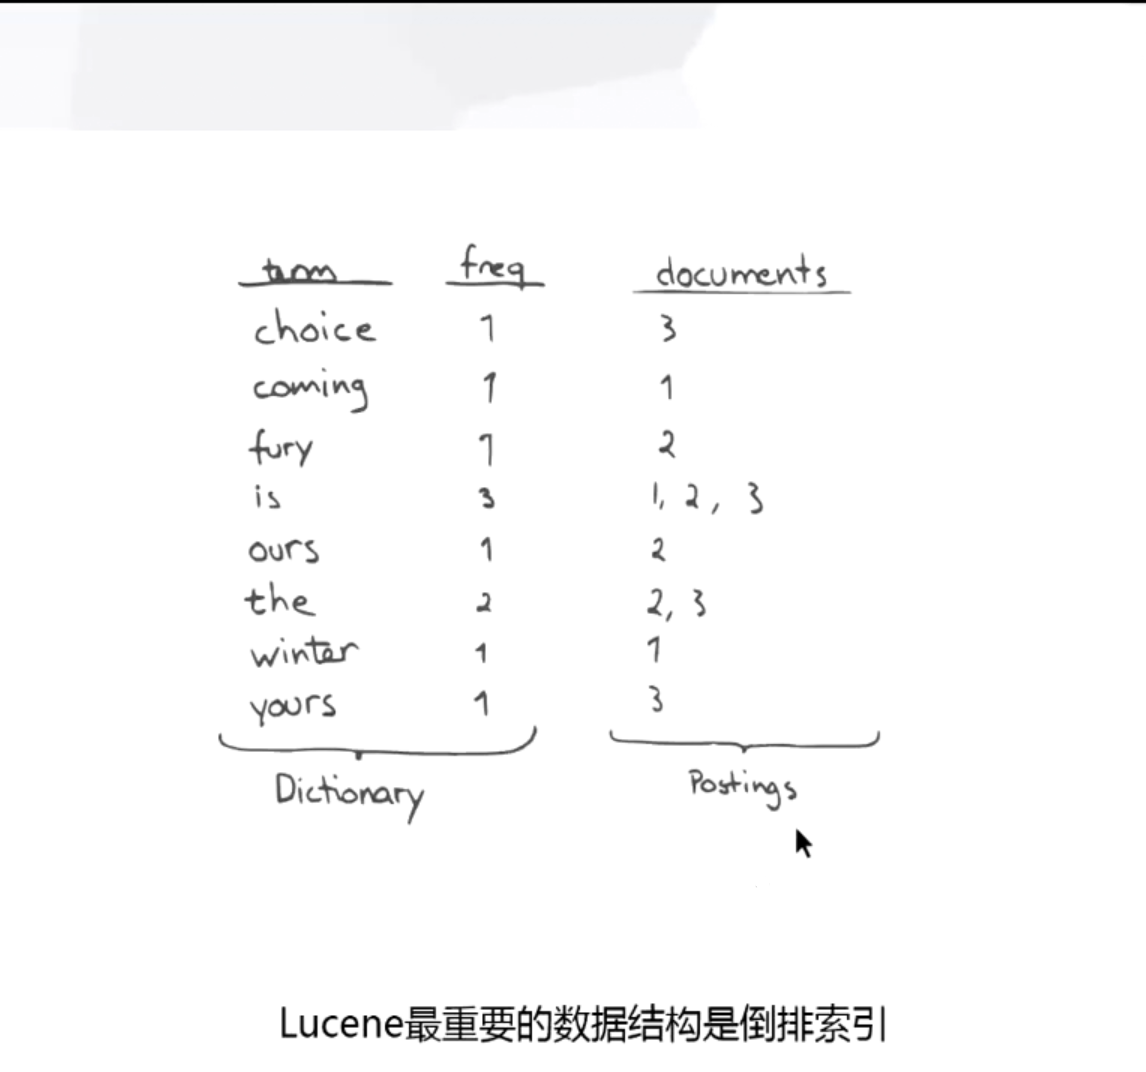 term freq documents
choice 1 3
coming 1 1
fury 1 2
is 3 1, 2, 3
ours 1 2
the 2 2, 3
winter 1 1
yours 1 3
Dictionary Postings
Lucene最重要的数据结构是倒排索引